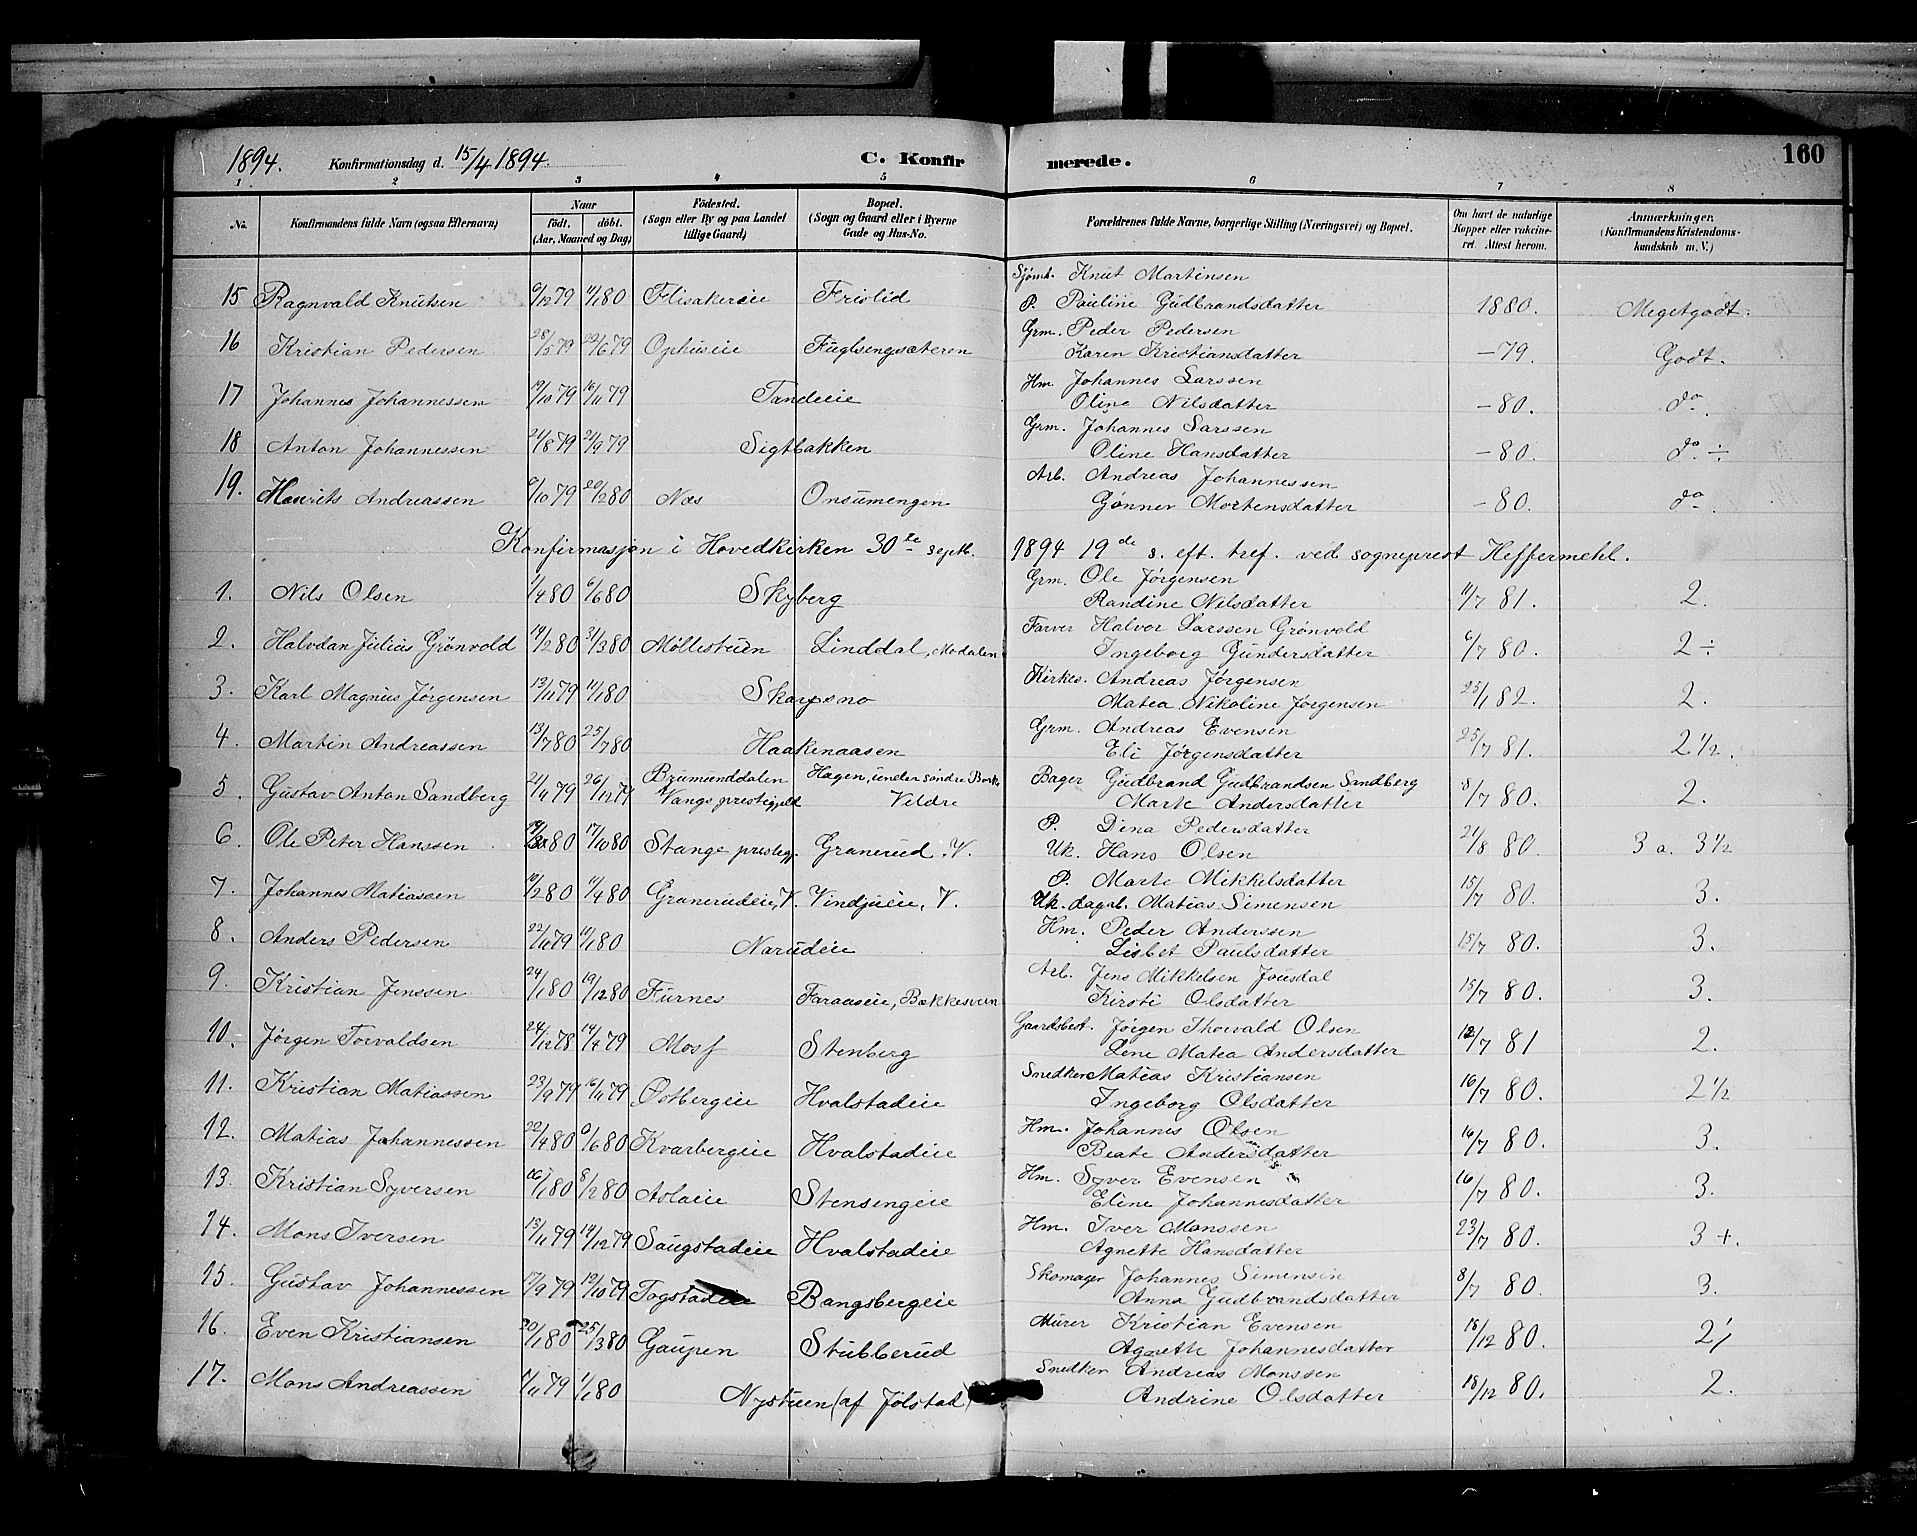 1894. Konfirmationsdag d. 15/4 1894. C. Konfirmerede. 160
1 2 3 4 5 6 7 8
No. Konfirmandens fulde Navn (ogsaa Efternavn) Naar født. døbt. (Aar, Maaned og Dag) Fødested. (Sogn eller By og paa Landet tillige Gaard) Bopæl. (Sogn og Gaard eller i Byerne Gade og Hus-No. Forældrenes fulde Navne, borgerlige Stilling (Næringsvei) og Bopæl. Om havt de naturlige Kopper eller vakcineret. Attest herom. Anmærkninger. (Konfirmandens Kristendomskundskab m. V.)
15 Ragnvald Knutsen 6/12 79 11/1 80 Flisakereie Friolid Sjømd. Knut Martinsen
P. Pauline Gudbrandsdatter 1880. Megetgodt.
16 Kristian Pedersen 28/5 79 22/6 79 Ophuseie Fuglsengsæteren Grm. Peder Pedersen
Karen Kristiansdatter —79. Godt.
17 Johannes Johannessen 19/10 79 16/11 79 Tandeeie Hm. Johannes Larssen
Oline Nilsdatter —80. do.
18 Anton Johannessen 21/8 79 21/9 79 Sigtbakken Grm. Johannes Larssen
Oline Hansdatter —80. do. ÷
19. Henrits Andreassen 9/10 79 20/2 80 Næs Onsumengen Arb. Andreas Johannessen
Gønner Mortensdatter —80. do.
Konfirmasjon i Hovedkirken 30te septb. 1894 19de s. eft. tref. ved sogneprest Heffermehl.
1. Nils Olsen 1/4 80 6/6 80 Skyberg Grm. Ole Jørgensen
Randine Nilsdatter 11/7 81. 2.
2. Halvdan Julius Grønvold 14/2 80 31/3 80 Møllestuen Linddal, Modalen Farver Halvor Larssen Grønvold
Ingeborg Gundersdatter 6/7 80. 2 ÷
3. Karl Magnus Jørgensen 13/11 79 11/1 80 Skarpsno Kirkes. Andreas Jørgensen
Matea Nikoline Jørgensen 25/1 82. 2.
4. Martin Andreassen 13/7 80 25/7 80 Haakenaasen Grm. Andreas Evensen
Eli Jørgensdatter 25/7 81. 2 1/2.
5. Gustav Anton Sandberg 21/11 79 26/12 79 Brumunddalen Vangs prestigjeld Hagen, under søndre Berke Veldre Bager Gudbrand Gudbrandsen Sandberg
Marte Andersdatter 8/7 80. 2.
6. Ole Peter Hanssen 80 17/10 80 Stange prestegj. Granerud, V. P. Dina Pedersdatter
Uk. Hans Olsen 21/8 80. 3 a. 3 1/2
7. Johannes Matiassen 10/2 80 11/4 80 Granerudeie, V. Vindjueie, V. P. Marte Mikkelsdatter
Uk. dagal. Matias Simensen 15/7 80. 3.
8. Anders Pedersen 22/11 79 11/1 80 Narudeie Hm. Peder Anderssen
Lisbet Paulsdatter 15/7 80. 3.
9. Kristian Jenssen 24/1 80 19/12 80 Furnes Faraaseie, Bækkesveen Arb. Jens Mikkelsen Jousdal
Kirsti Olsdatter 15/7 80. 3.
10. Jørgen Torvaldsen 24/12 78 14/4 79 Mosf Stenberg Gaardsbest. Jørgen Thorvald Olsen
Lene Matea Andersdatter 12/7 81 2.
11. Kristian Matiassen 23/9 79 16/11 79 Østbergeie Hvalstadeie Snedker Matias Kristiansen
Ingeborg Olsdatter 16/7 80. 2 1/2
12. Matias Johannessen 22/4 80 6/6 80 Kvarbergeie Hvalstadeie Hm. Johannes Olsen
Beate Andersdatter 16/7 80. 3.
13. Kristian Syversen 16/1 80 8/2 80 Aslaeie Stensengeie Hm. Syver Evensen
Eline Johannesdatter 16/7 80. 3.
14. Mons Iversen 13/11 79 14/12 79 Saugstadeie Hvalstadeie Hm. Iver Monssen
Agnette Hansdatter 23/7 80. 3 +.
15. Gustav Johannessen 17/9 79 19/10 79 Togstadeie Bangsbergeie Skomager Johannes Simensen
Anna Gudbrandsdatter 8/7 80. 3.
16. Even Kristiansen 20/1 80 25/3 80 Gaupen Stubberud Murer Kristian Evensen
Agnette Johannesdatter 18/12 80.
17. Mons Andreassen 1/11 79 1/1 80 Nystuen (af Jølstad) Snedker Andreas Monssen
Andrine Olsdatter 18/12 80. 2.